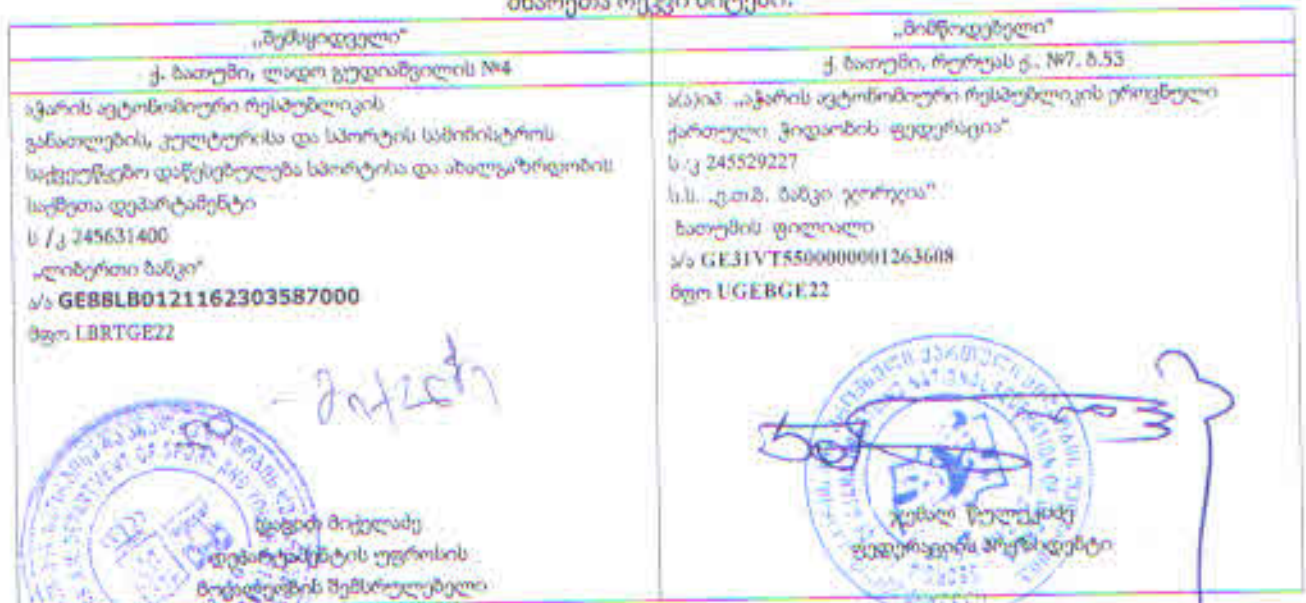 მხარეთა რეკვიზიტები:
„შემსყიდველი“
ქ. ბათუმი, ლადო გუდიაშვილის №4
აჭარის ავტონომიური რესპუბლიკის
განათლების, კულტურისა და სპორტის სამინისტროს
საქვეუწყებო დაწესებულება სპორტისა და ახალგაზრდობის
საქმეთა დეპარტამენტი
ს /კ 245631400
„ლიბერთი ბანკი“
ა/ა GE88LB0121162303587000
მფო LBRTGE22
დავით მიქელაძე
დეპარტამენტის უფროსის
მოვალეობის შემსრულებელი
„მიმწოდებელი“
ქ. ბათუმი, რურუას ქ., №7, ბ.53
ა(ა)იპ „აჭარის ავტონომიური რესპუბლიკის ეროვნული
ქართული ჭიდაობის ფედერაცია“
ს /კ 245529227
ს.ს. „ვ.თ.ბ. ბანკი ჯორჯია“
ბათუმის ფილიალი
ა/ა GE31VT5500000001263608
მფო UGEBGE22
ფედერაციის პრეზიდენტი